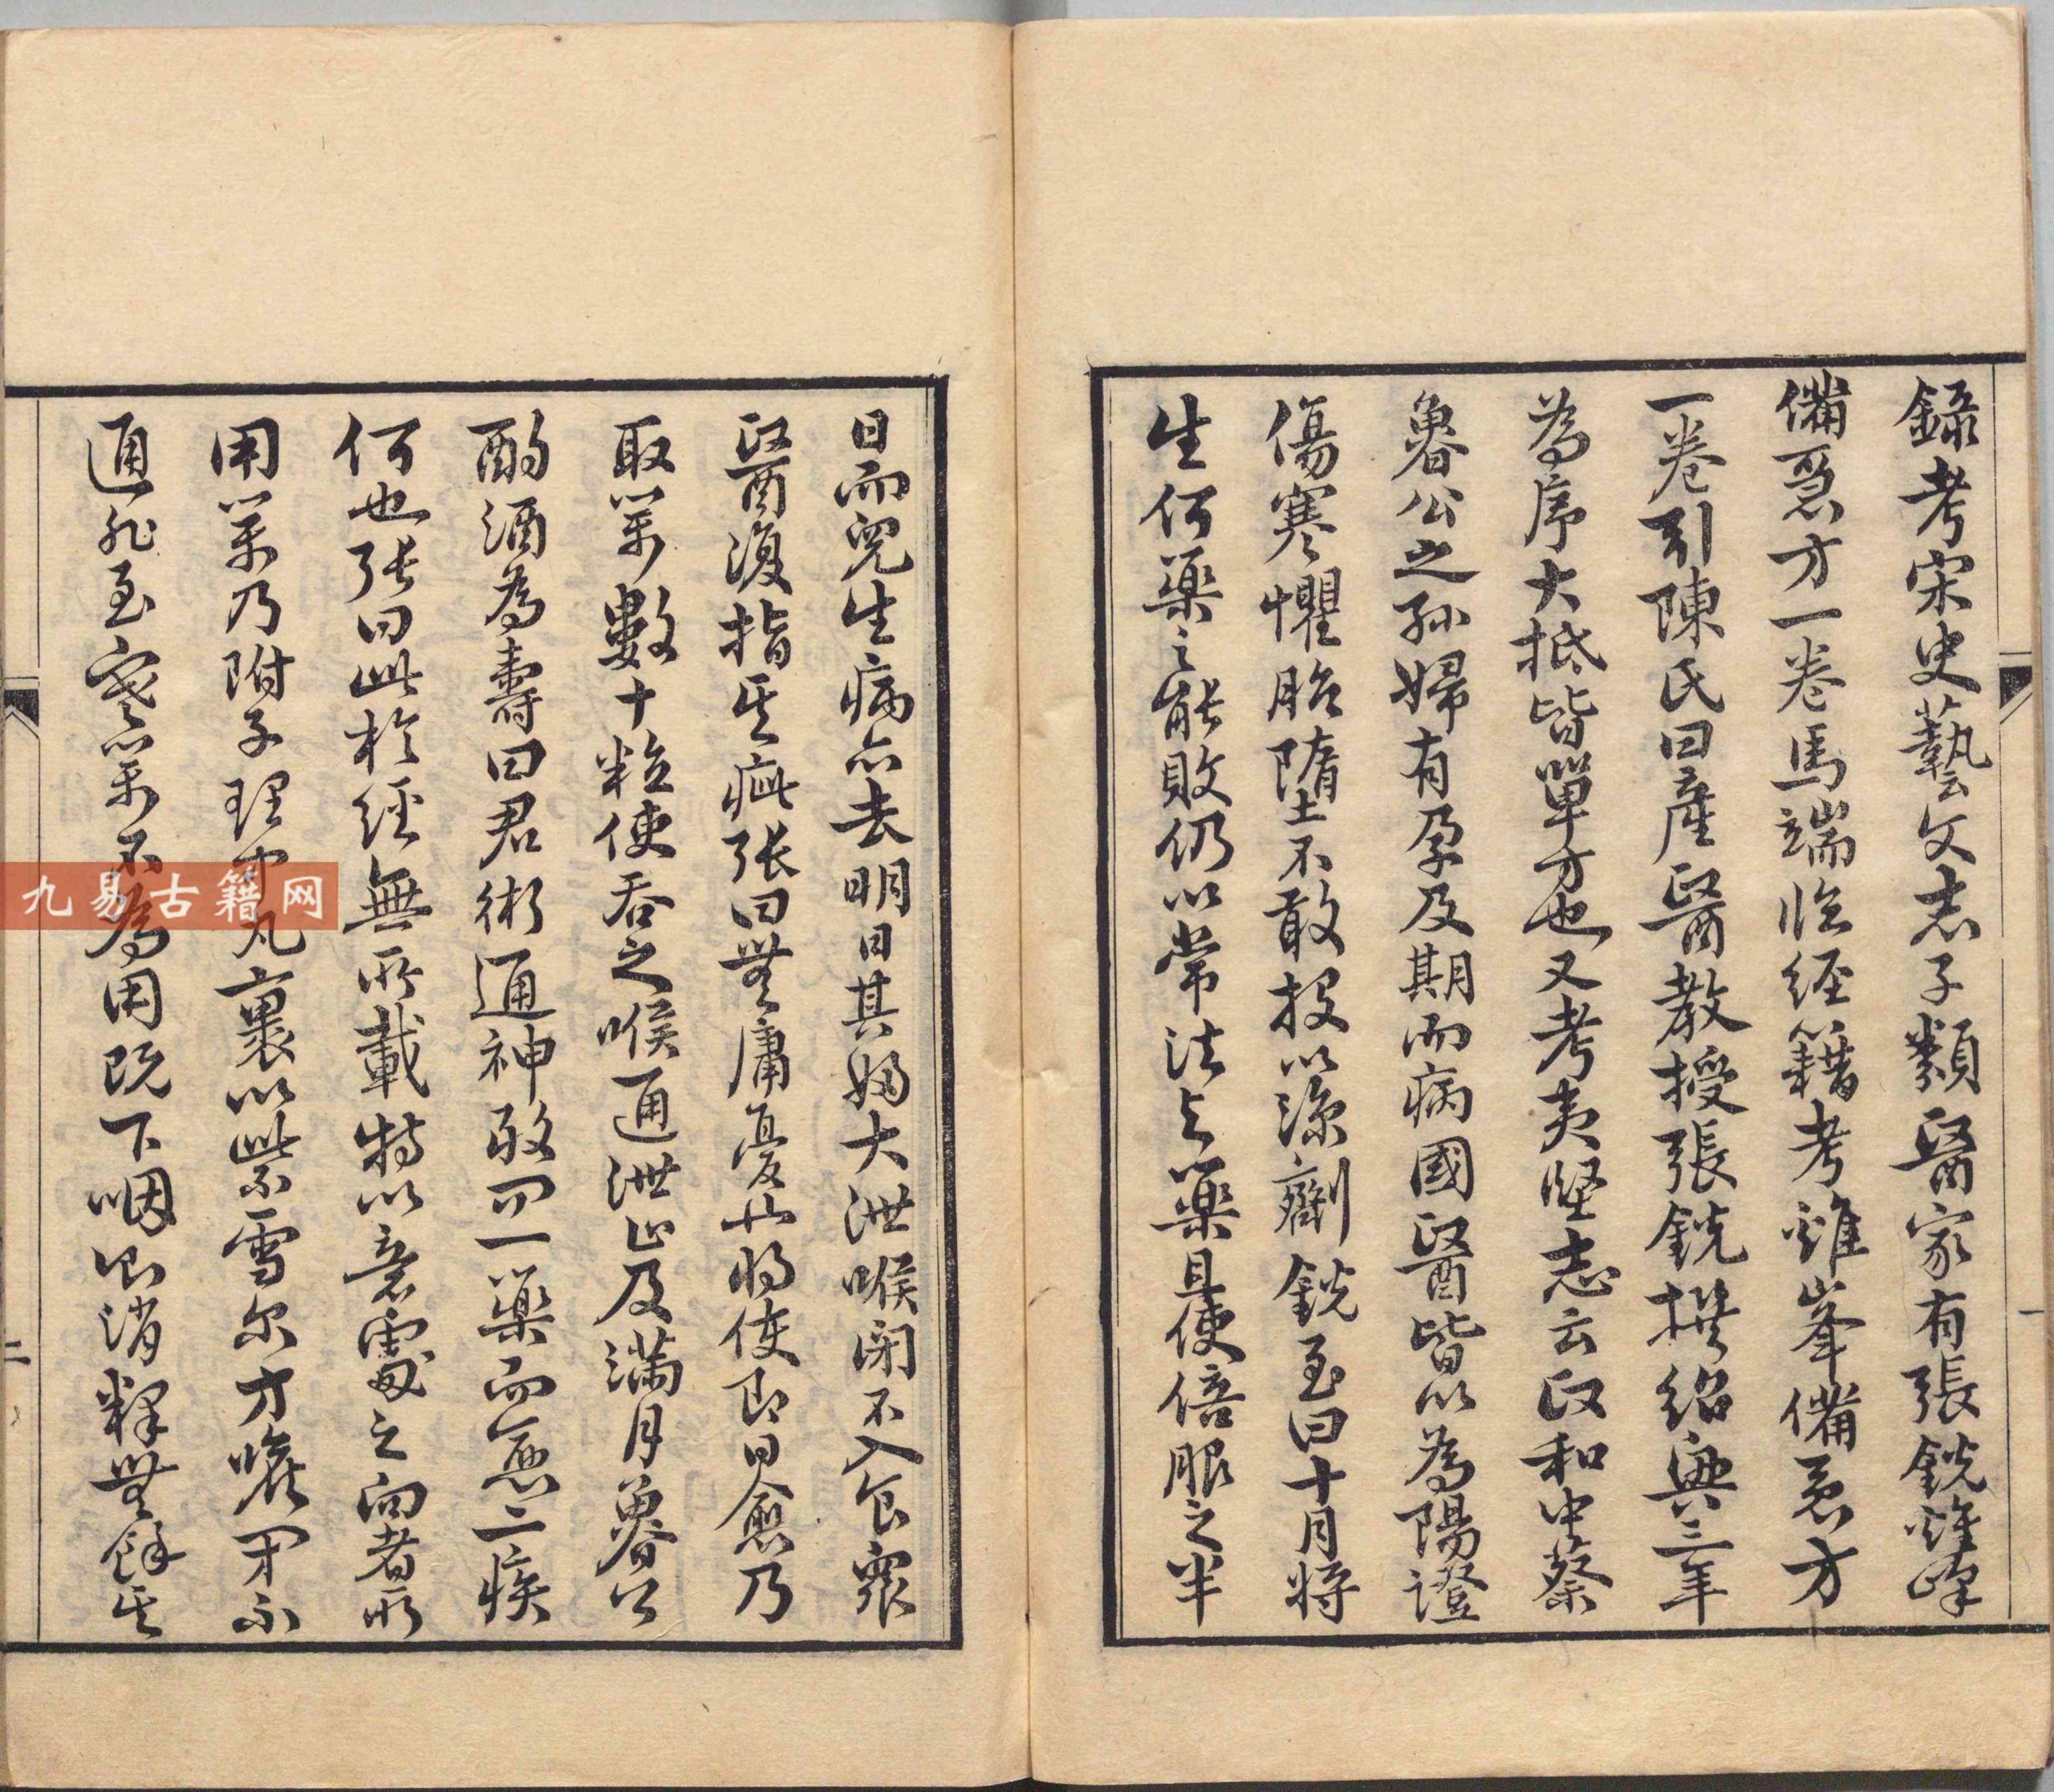 錄考宋史藝文志子類醫家有張銳雞峰
備急方一卷馬端臨經籍考雞峯備急方
一卷引陳氏曰產醫教授張銳撰紹興三年
為序大抵皆單方也又考夷堅志云政和中蔡
魯公之孫婦有孕及期而病國醫皆以為陽證
傷寒懼胎墮不敢投以涼劑銳至曰十月將
生何藥之能敗仍以常法與藥且使倍服之半
日而兒生病亦去明日其婦大泄喉閉不入食衆
醫復指其疵張曰無庸憂也將使即日愈乃
取藥數十粒使吞之喉通泄止及滿月魯公
酌酒為壽曰君術通神敢問一藥而愈二疾
何也張曰此於經無所載特以意處之向者所
用藥乃附子理中丸裹以紫雪尔方喉閉不
通非至寒藥不為用既下咽則消釋無餘其
九易古籍网
一
二